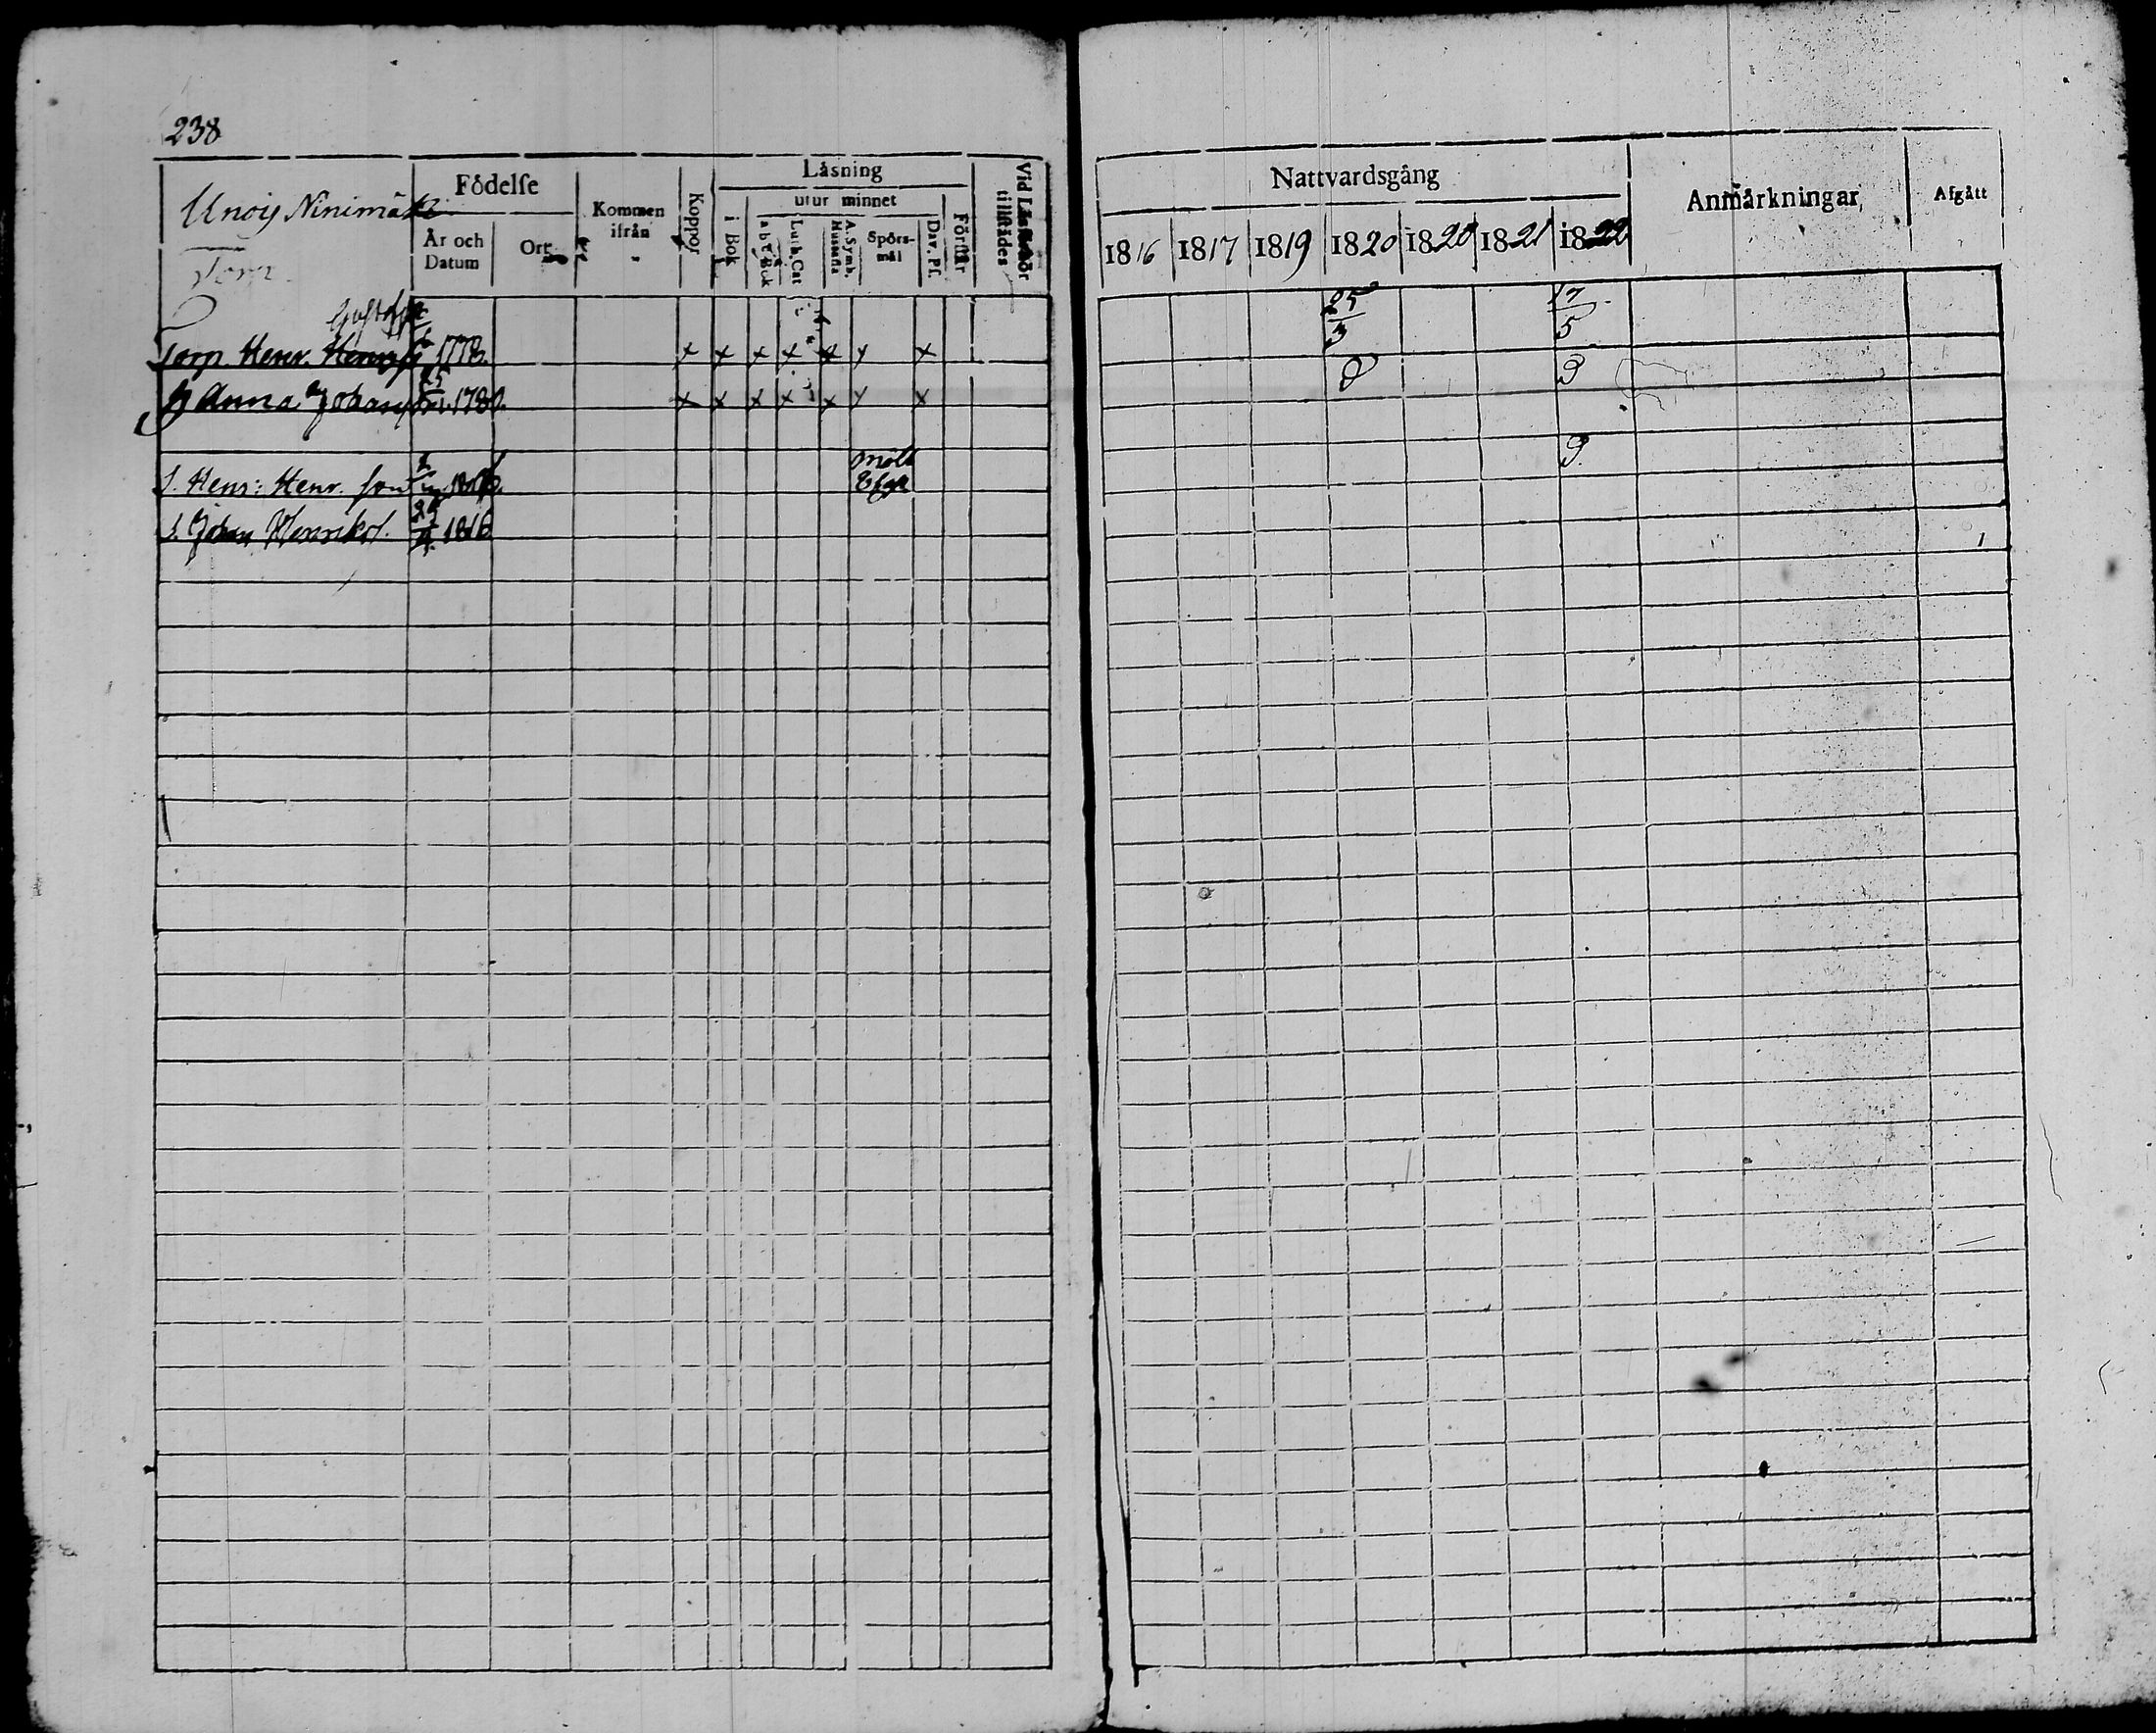 238
Unois Ninimäki
Torp.
Födelse
År och Datum
Ort
Kommen ifrån
Koppor
Läsning
i Bok
utur minnet
a b c Bok
Luth. Cat
A. Symb. Hustafla
Spörsmål
Dav. Ps.
Förstår
Vid Läsförhör tillstädes
Nattvardsgång
1816 1817 1819 1820 1820 1821 1822
Anmärkningar
Afgått
Gustafss
Torp. Henr. 1778. x x x x x x x 25/3 17/5
H Anna Johansd 25 1780. x x x x x x x
S. Henr: Henr. son 1806.
S. Johan Henrikss. 1816